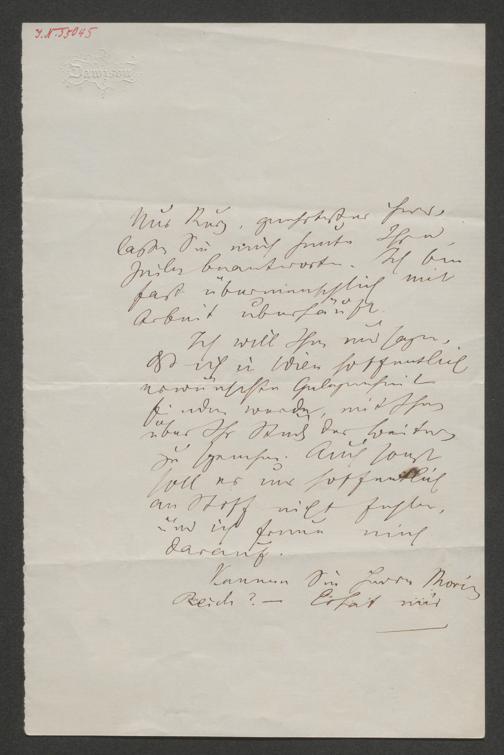 J.N. 55045
Dawison
Nur Kurz, geehrtester Herr,
lassen Sie mich heute Ihre
Zeilen beantworten. Ich bin
fast übermenschlich mit
Arbeit überhäuft.
Ich will Ihnen nur sagen,
daß ich in Wien hoffentlich
erwünschte Gelegenheit
finden werde, mit Ihnen
über Ihr Stück des weitern
zu sprechen. Auch sonst
soll es uns hoffentlich
an Stoff nicht fehlen,
und ich freue mich
darauf.
Kennen Sie Herrn Moriz
Reich? — Er hat mir